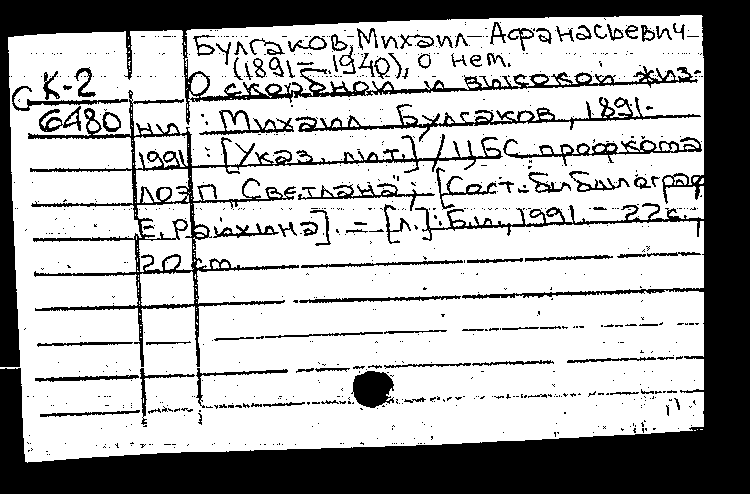 Булгаков, Михаил Афанасьевич
(1891 – 1940), о нем.
К-2 О скорбной и высокой жиз-
С 6480 ни : Михаил Булгаков, 1891-
1991 : [Указ. лит.] / ЦБС профкома
ЛОЭП "Светлана"; [Сост.-библиограф
Е. Райхина]. – [Л.] : Б.и., 1991. – 22 с.;
20 cm.